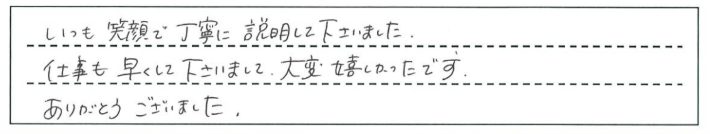 いつも 笑顔で 丁寧に 説明して下さいました.
仕事も 早くして下さいまして、大変 嬉しかったです.
ありがとう ございました.